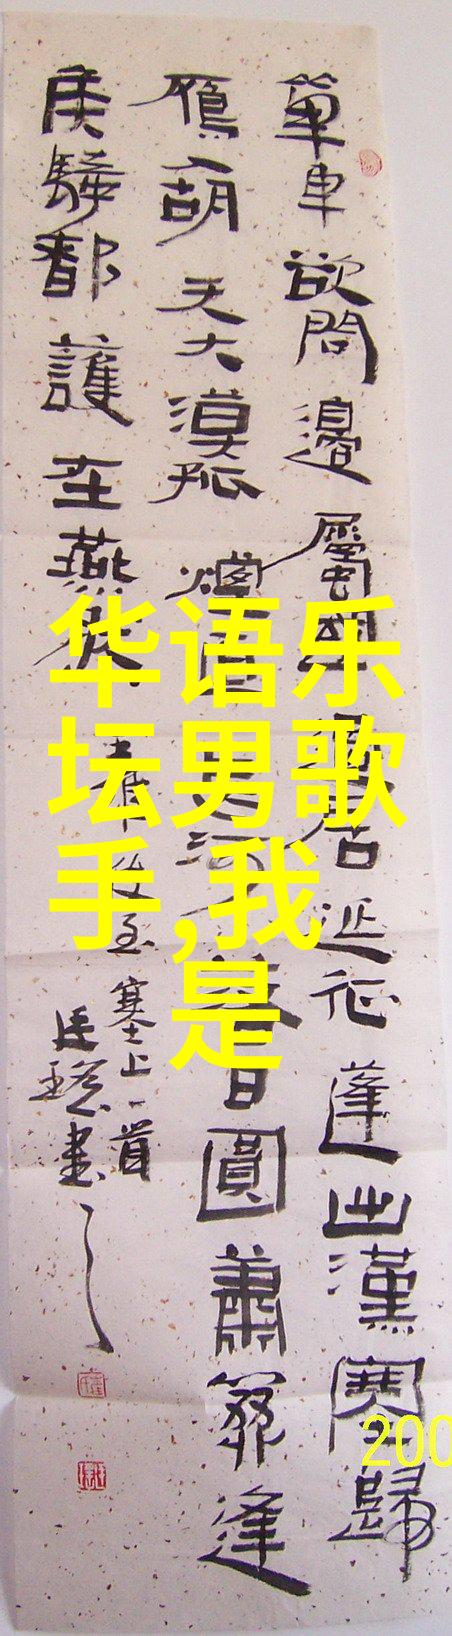 單車欲問邊屬國過居延征蓬出漢塞歸
鴈入胡天大漠孤煙直長河落日圓蕭關逢
侯騎都護在燕然
王維使至塞上一首
书
华语乐
坛男歌
手,我
是
200